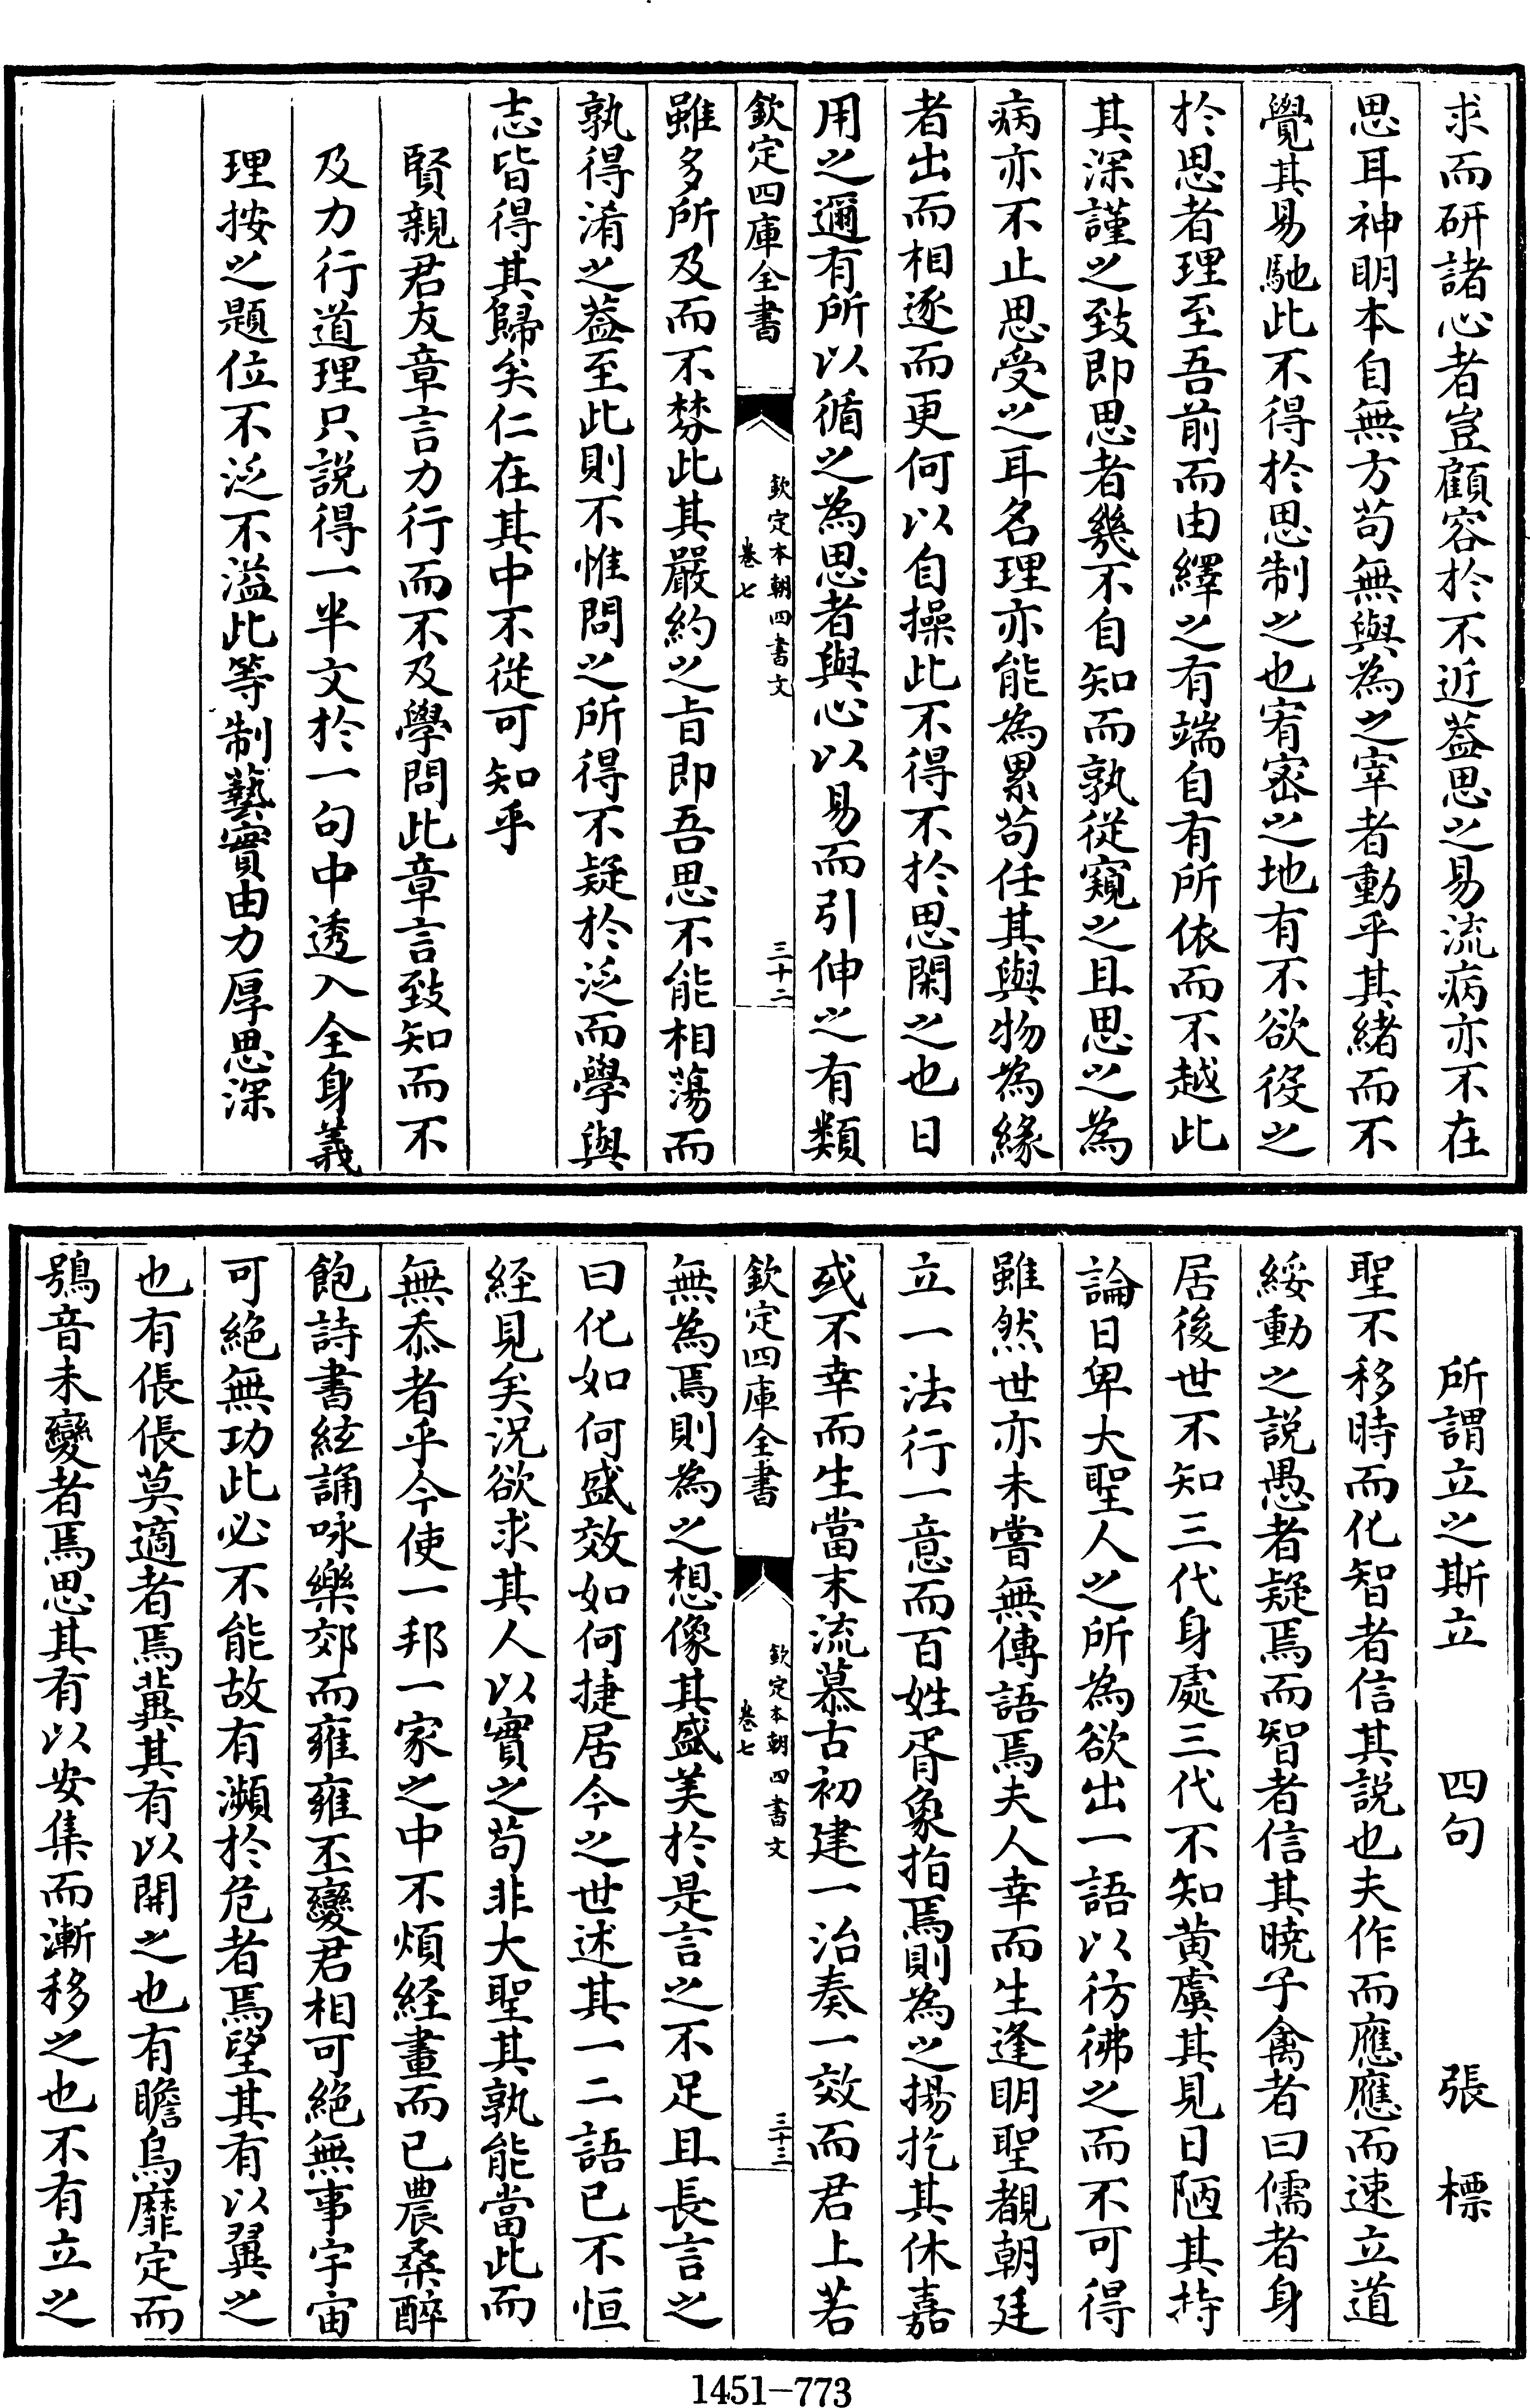 求而研諸心者豈顧容於不近葢思之易流病亦不在
思耳神明本自無方苟無與為之宰者動乎其緒而不
覺其易馳此不得於思制之也宥宻之地有不欲役之
於思者理至吾前而由繹之有端自有所依而不越此
其深謹之致即思者幾不自知而孰從窺之且思之為
病亦不止思受之耳名理亦能為累苟任其與物為緣
者出而相逐而更何以自操此不得不於思閑之也日
用之邇有所以循之為思者與心以易而引伸之有類
欽定四庫全書
欽定本朝四書文
卷七
三十二
雖多所及而不棼此其嚴約之旨即吾思不能相蕩而
孰得淆之葢至此則不惟問之所得不疑於泛而學與
志皆得其歸矣仁在其中不從可知乎
賢親君友章言力行而不及學問此章言致知而不
及力行道理只說得一半文於一句中透入全身義
理按之題位不泛不溢此等制藝實由力厚思深
所謂立之斯立　四句　張標
聖不移時而化智者信其說也夫作而應應而速立道
綏動之說愚者疑焉而智者信其曉子禽者曰儒者身
居後世不知三代身處三代不知黄虞其見日陋其持
論日卑大聖人之所為欲出一語以彷彿之而不可得
雖然世亦未嘗無傳語焉夫人幸而生逢明聖覩朝廷
立一法行一意而百姓胥象指焉則為之揚扢其休嘉
或不幸而生當末流慕古初建一治奏一效而君上若
欽定四庫全書
欽定本朝四書文
卷七
三十三
無為焉則為之想像其盛美於是言之不足且長言之
曰化如何盛效如何捷居今之世述其一二語已不恒
經見矣況欲求其人以實之苟非大聖其孰能當此而
無忝者乎今使一邦一家之中不煩經畫而已農桑醉
飽詩書絃誦咏樂郊而雍雍丕變君相可絶無事宇宙
可絶無功此必不能故有瀕於危者焉望其有以翼之
也有倀倀莫適者焉冀其有以開之也有瞻烏靡定而
鴞音未變者焉思其有以安集而漸移之也不有立之
1451-773